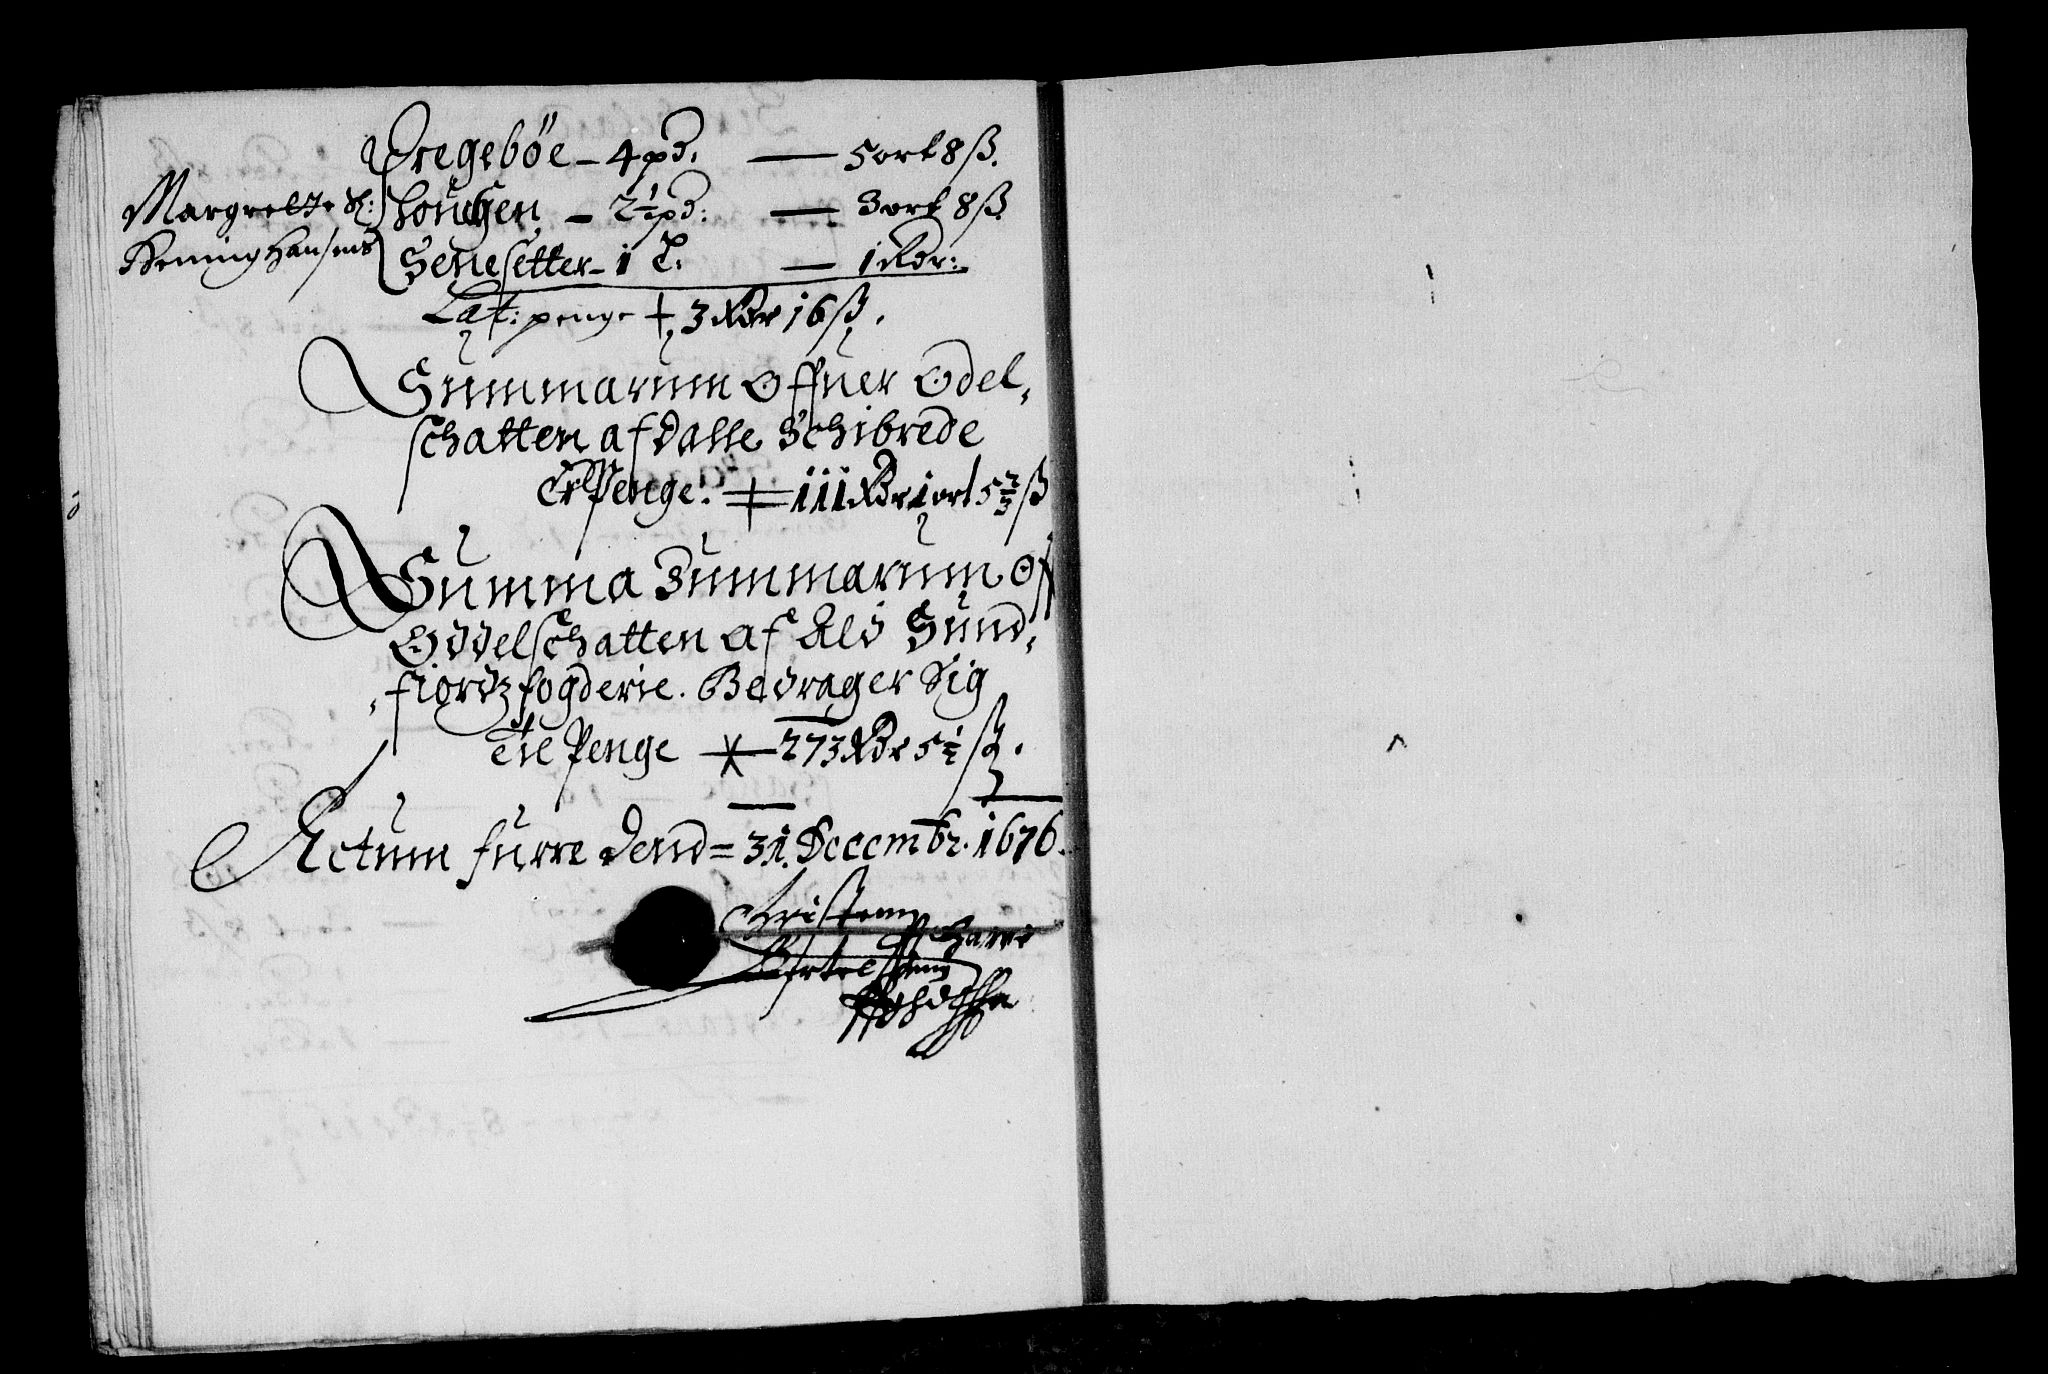 Vregeböe – 4 pd. — 5 ort 8 ß.
Margrette Sl: Louchen – 2½ pd: — 3 ort 8 ß.
Hening Hansens Senesetter – 1 T. — 1 Rdr:
Lat: penge + 3 Rdr 16 ß.
Summarum offuer Odel,
schatten af Dalle Schibrede
Er Penge. 111 Rdr 1 ort 5⅔ ß
Summa Summarum Off
Odelschatten af Ald Sund,
fiordz fogderie. Bedrager Sig
Til Penge 273 Rdr 5½ ß.
Actum furre Dend = 31. Decembr. 1676.
Christenn
Bertelssenn